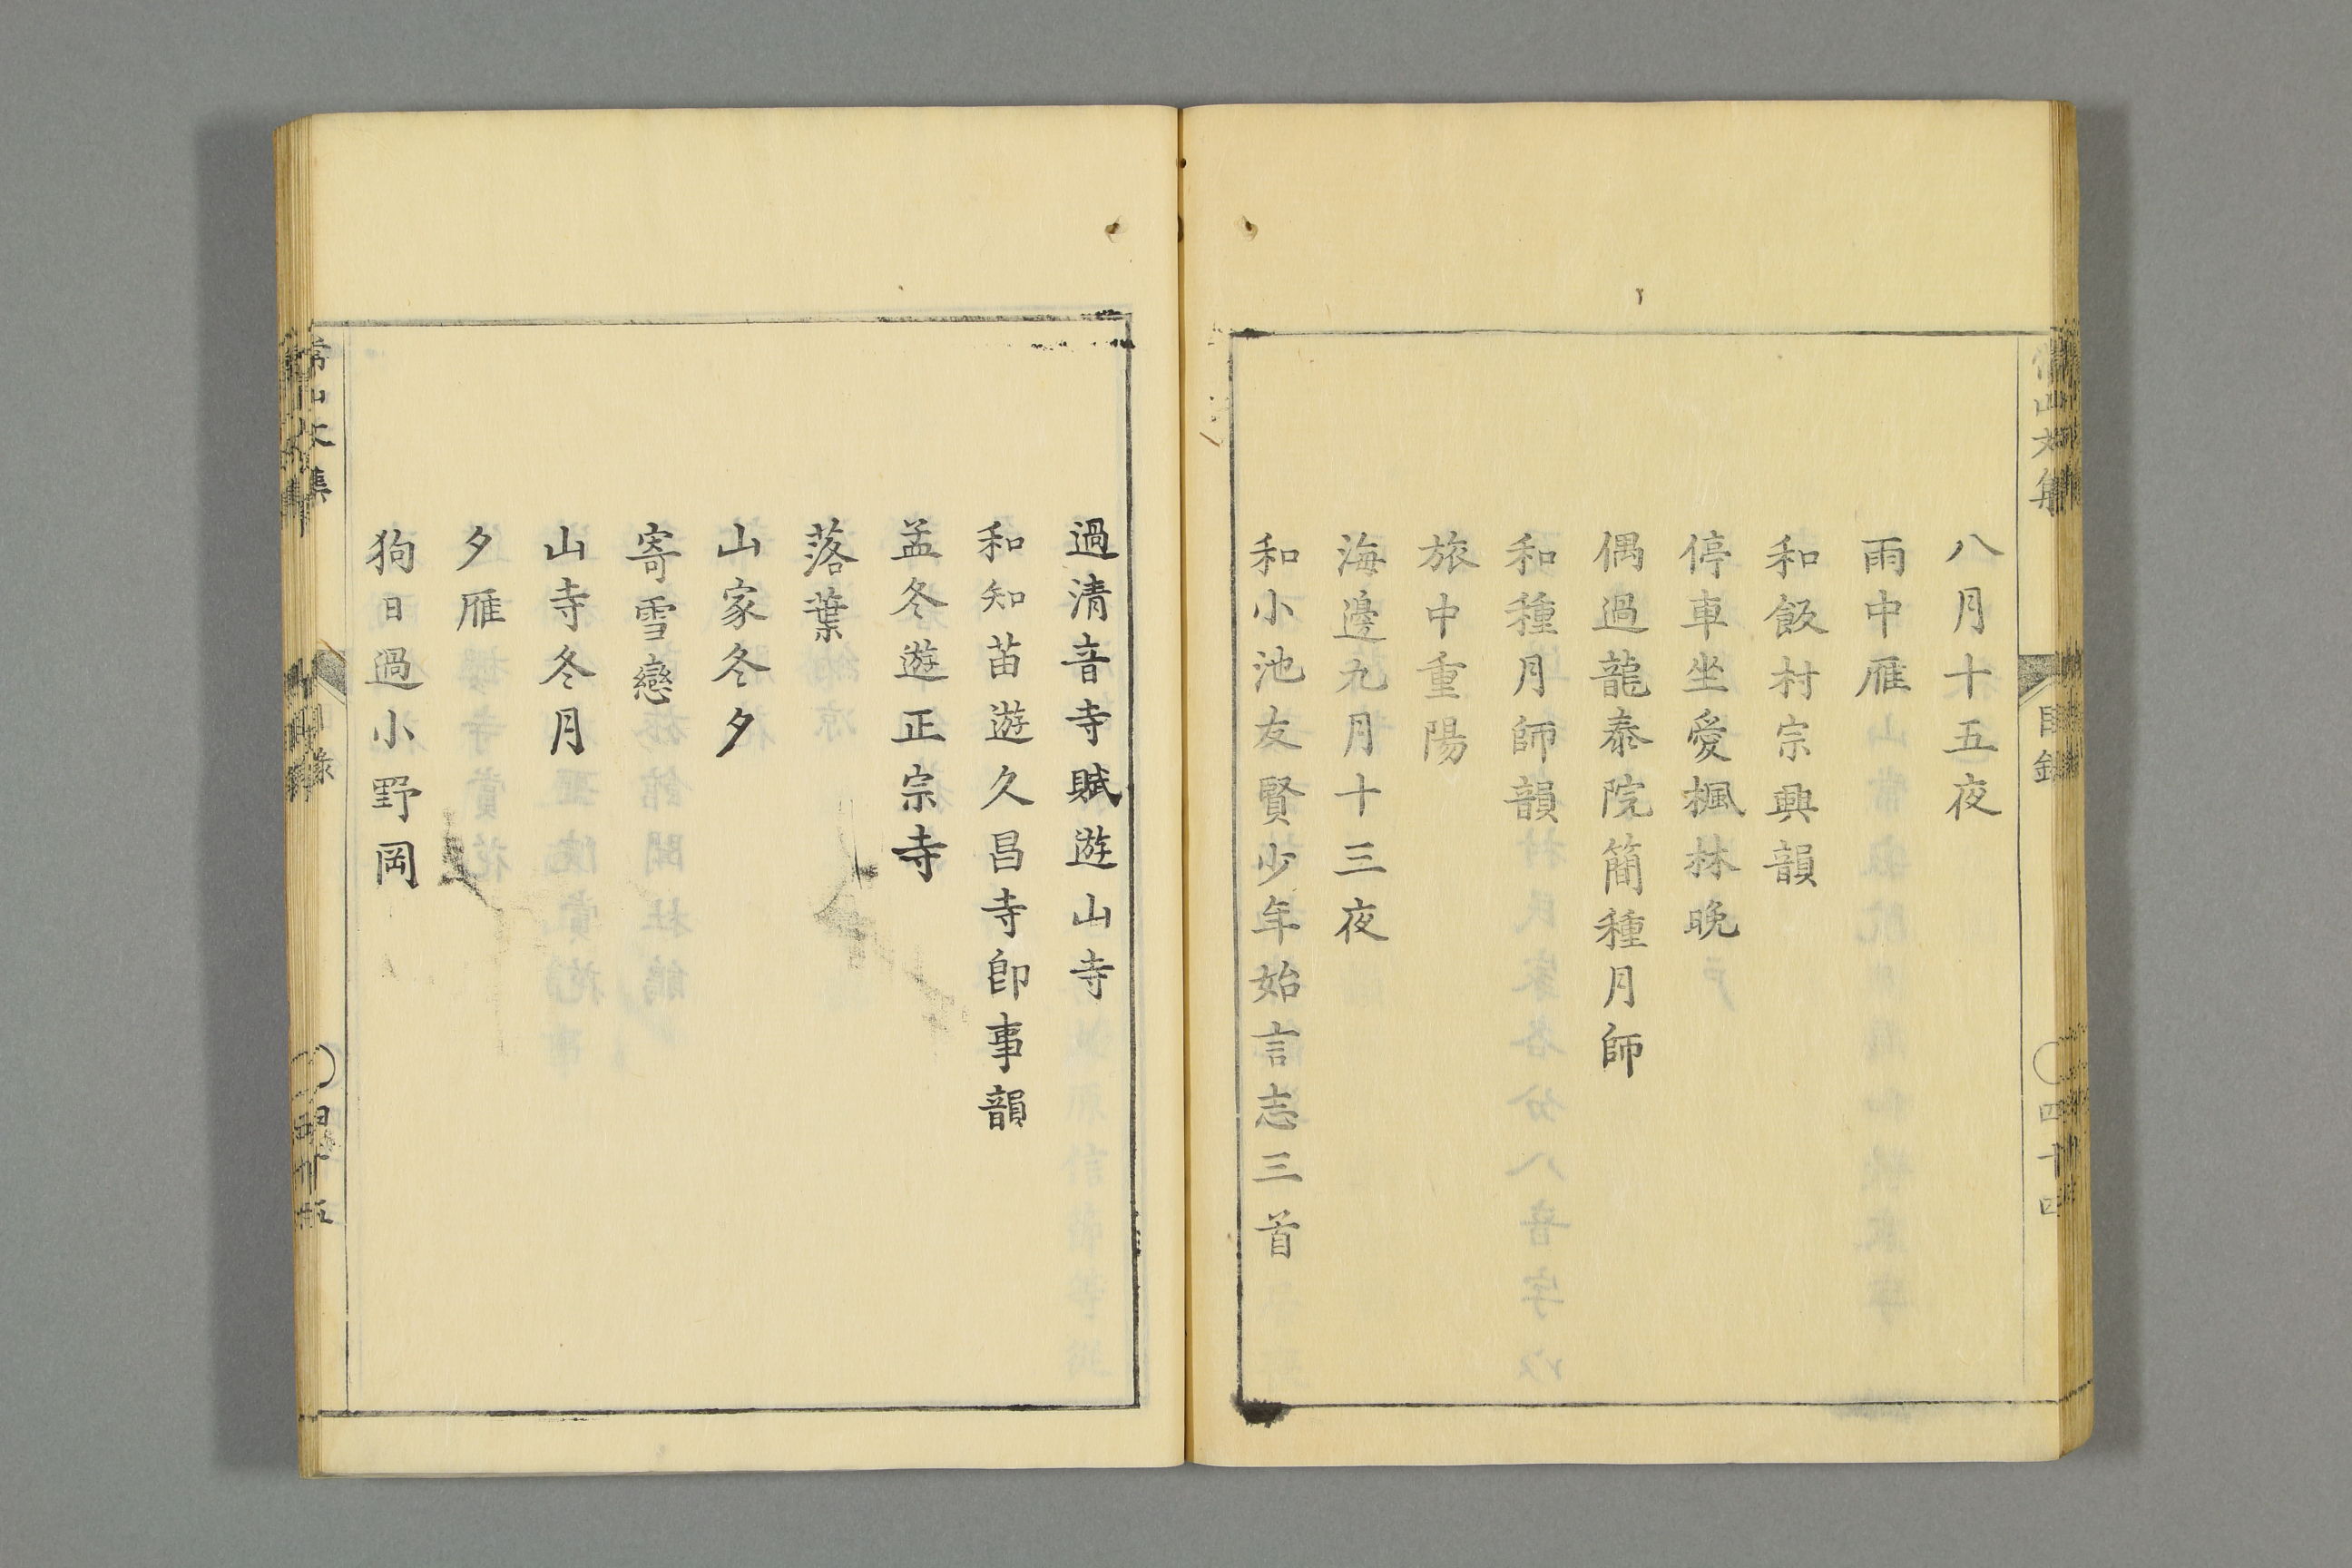 常山文集
目錄
四十四
八月十五夜
雨中雁
和飯村宗興韻
停車坐愛楓林晚
偶過龍泰院簡種月師
和種月師韻
旅中重陽
海邊九月十三夜
和小池友賢少年始言志三首
過清音寺賦遊山寺
和知苗遊久昌寺卽事韻
孟冬遊正宗寺
落葉
山家冬夕
寄雪戀
山寺冬月
夕雁
狗日過小野岡
常山文集
目錄